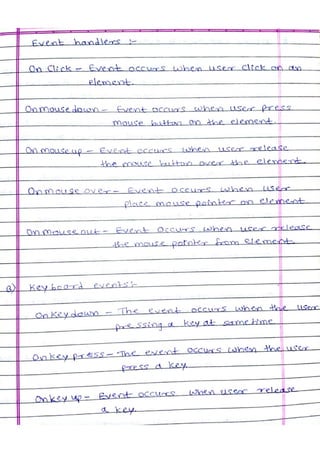 Event handlers :-
On Click - Event occurs when user click on an
element.
Onmousedown - Event occurs when user press
mouse button on the element.
Onmouseup - Event occurs when user release
the mouse button over the element.
Onmouseover - Event occurs when user
place mouse pointer on element
Onmouseout - Event occurs when user release
the mouse pointer from element.
a) Keyboard events:-
Onkeydown - The event occurs when the user
pressing a key at sometime
Onkeypress - The event occurs when the user
press a key
Onkeyup - Event occurs when user release
a key.